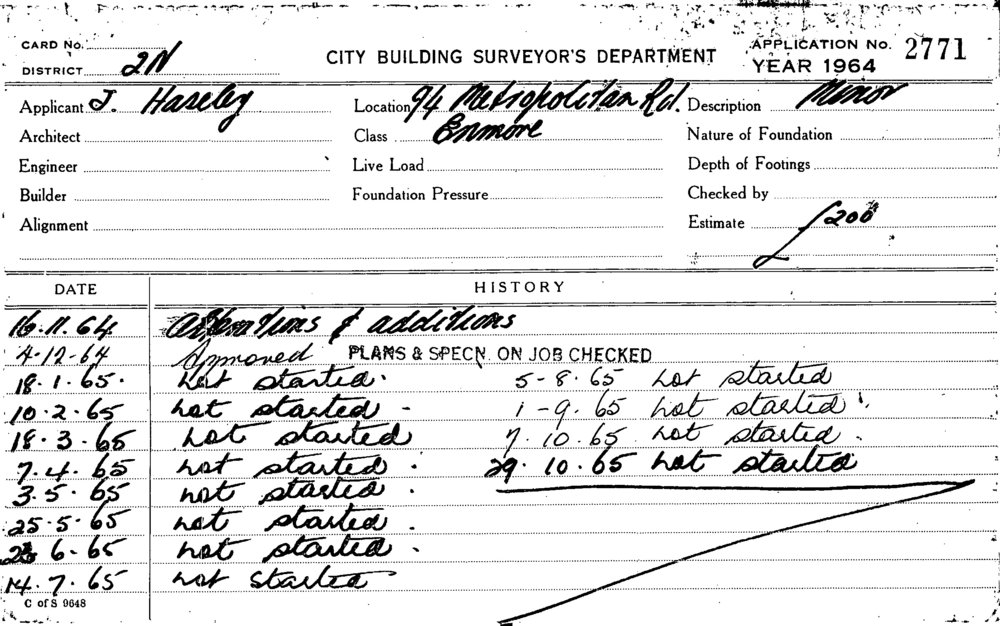 CARD No.
DISTRICT 2N
CITY BUILDING SURVEYOR'S DEPARTMENT
APPLICATION No. 2771
YEAR 1964
Applicant J. Haseley
Location 94 Metropolitan Rd.
Description Minor
Architect
Class Enmore
Nature of Foundation
Engineer
Live Load
Depth of Footings
Builder
Foundation Pressure
Checked by
Alignment
Estimate £200
DATE
HISTORY
16.11.64 Alterations & additions
4-12-64 Approved PLANS & SPECN. ON JOB CHECKED
18.1.65. not started. 5-8.65 not started
10.2.65 not started - 1-9.65 not started.
18.3.65 not started 7.10.65 not started.
7.4.65 not started. 29.10.65 not started
3.5.65 not started.
25.5.65 not started.
6-65 not started.
14.7.65 not started
C of S 9648